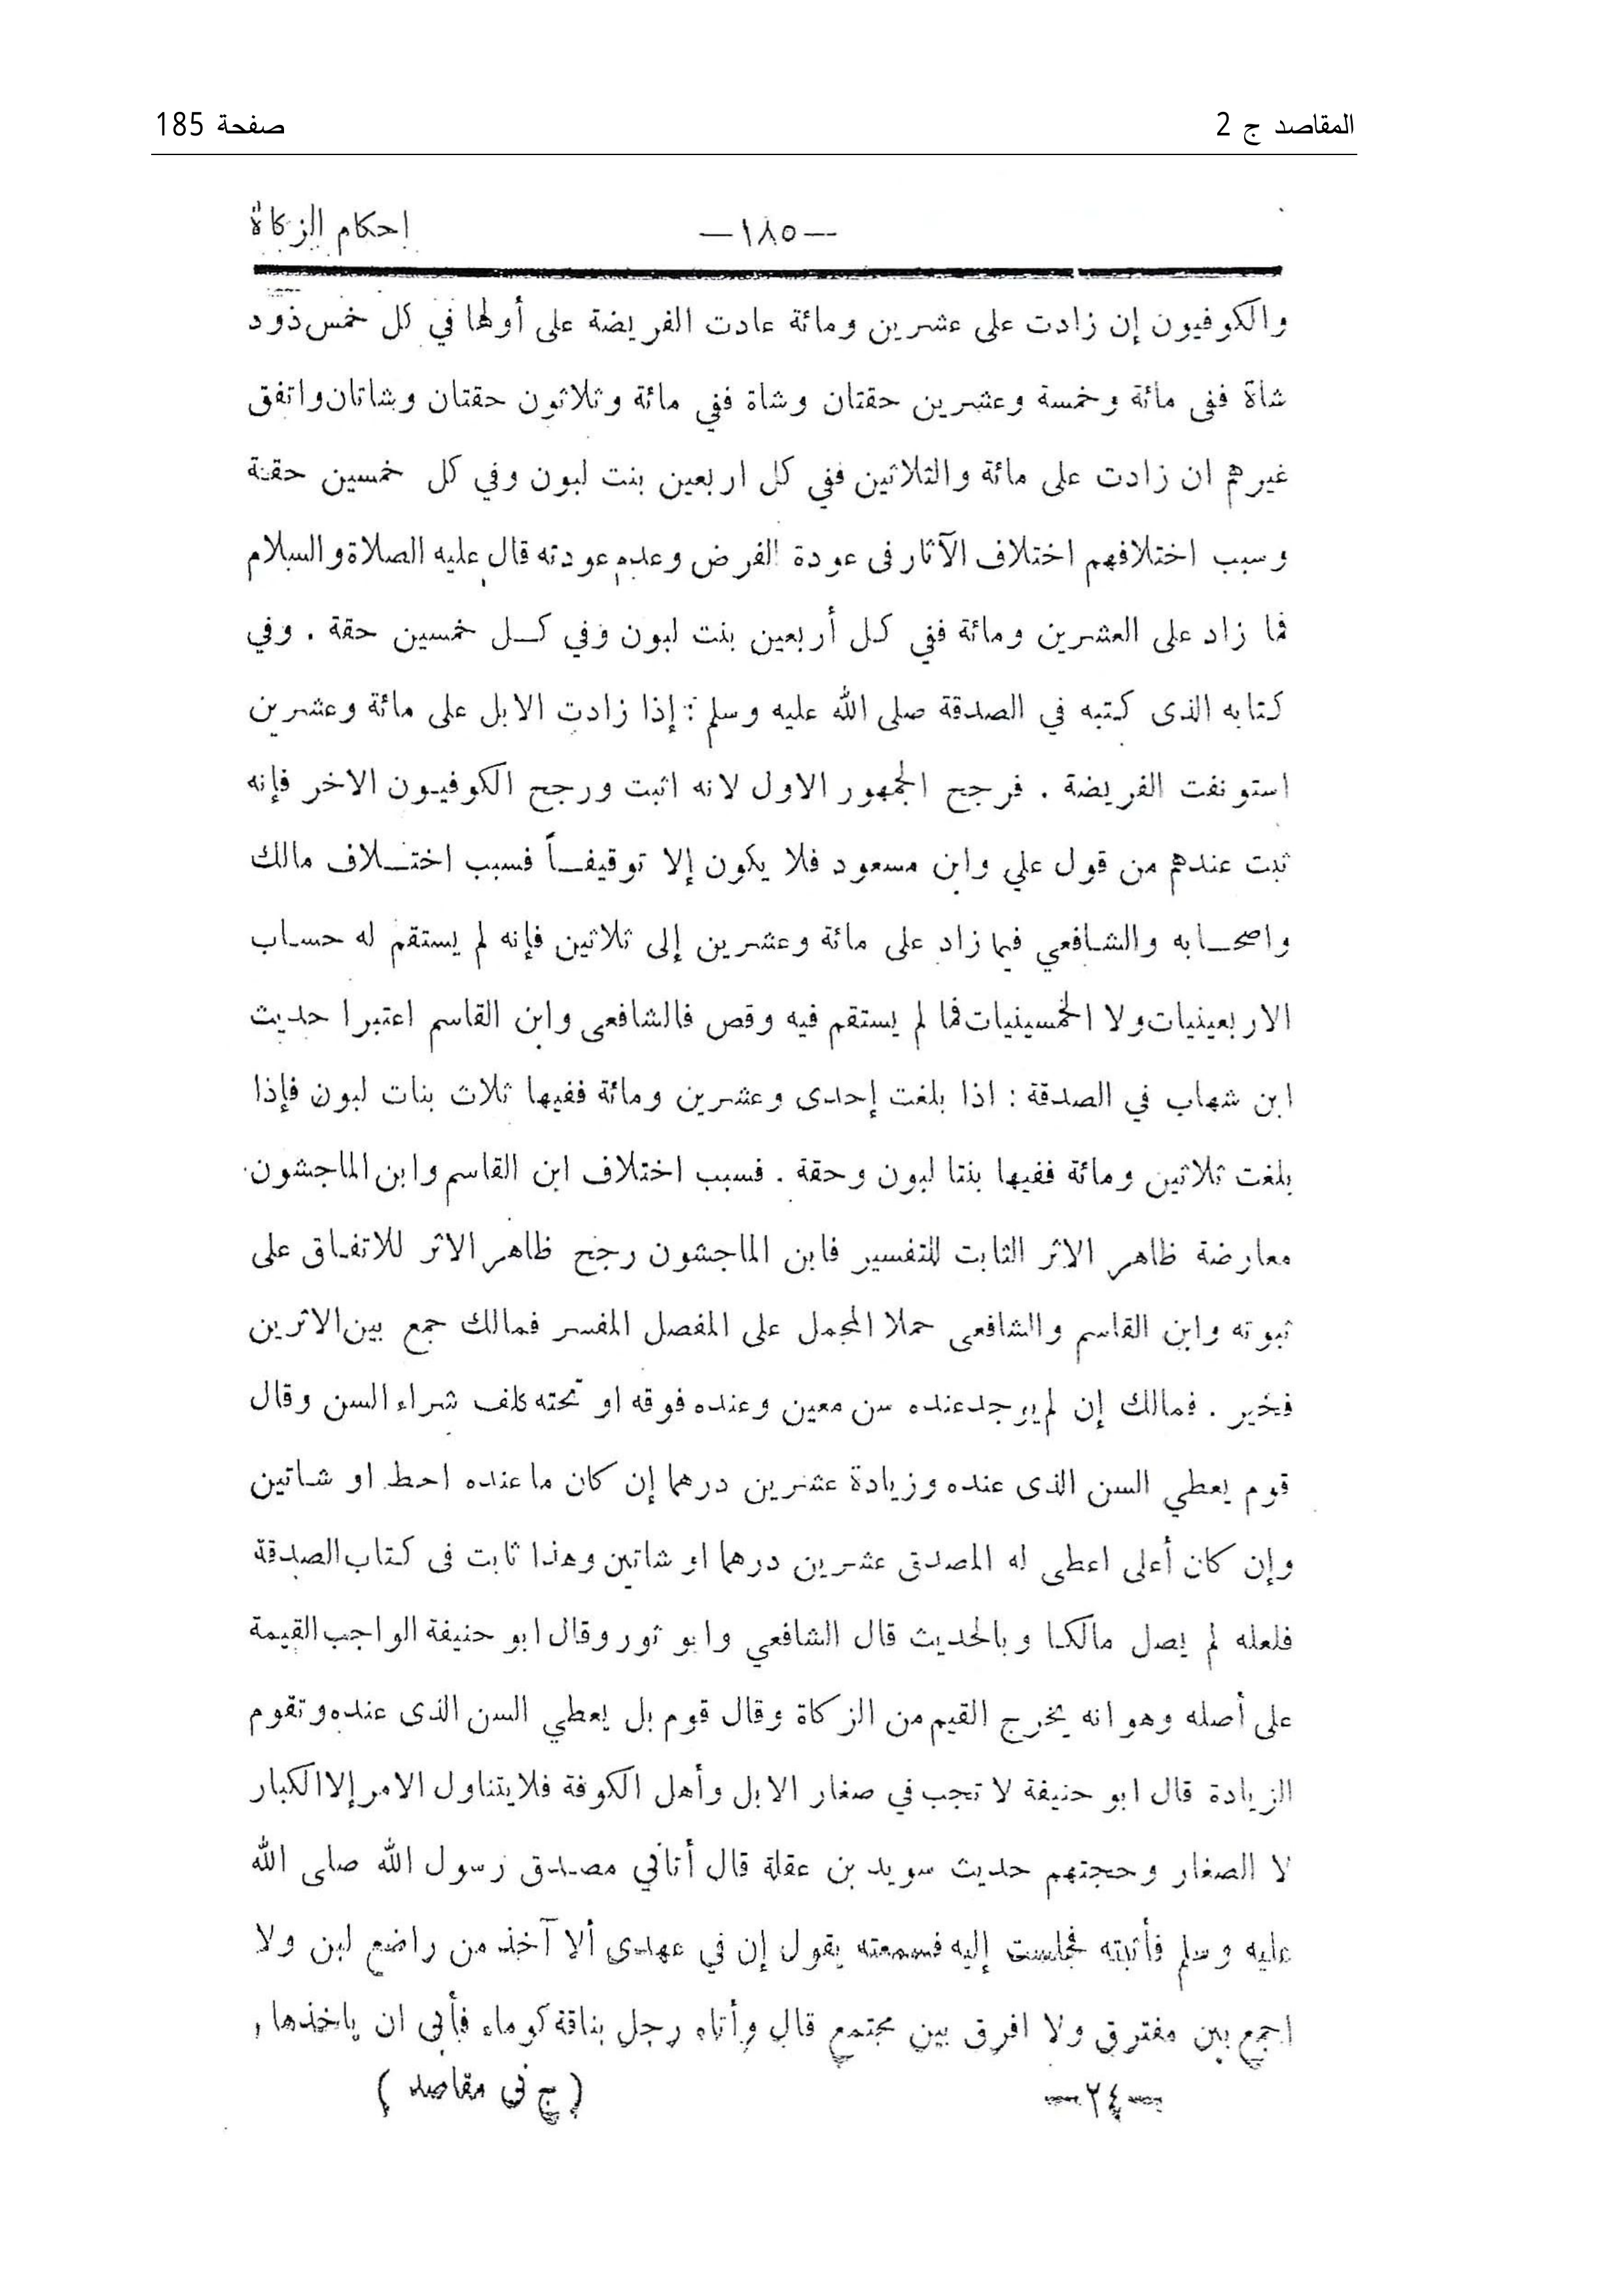 المقاصد ج 2
صفحة 185
احكام الزكاة
—١٨٥—
والكوفيون إن زادت على عشرين ومائة عادت الفريضة على أولها في كل خمس ذود
شاة ففى مائة وخمسة وعشرين حقتان وشاة ففي مائة وثلاثون حقتان وشاتان واتفق
غيرهم ان زادت على مائة والثلاثين ففي كل اربعين بنت لبون وفي كل خمسين حقة
وسبب اختلافهم اختلاف الآثار فى عودة الفرض وعدم عودته قال عليه الصلاة والسلام
فما زاد على العشرين ومائة ففي كل أربعين بنت لبون وفي كل خمسين حقة . وفي
كتابه الذى كتبه في الصدقة صلى الله عليه وسلم : إذا زادت الابل على مائة وعشرين
استونفت الفريضة . فرجح الجمهور الاول لانه اثبت ورجح الكوفيون الاخر فإنه
ثبت عندهم من قول علي وابن مسعود فلا يكون إلا توقيفاً فسبب اختلاف مالك
واصحابه والشافعي فيما زاد على مائة وعشرين إلى ثلاثين فإنه لم يستقم له حساب
الاربعينيات ولا الخمسينيات فما لم يستقم فيه وقص فالشافعى وابن القاسم اعتبرا حديث
ابن شهاب في الصدقة : اذا بلغت إحدى وعشرين ومائة ففيها ثلاث بنات لبون فإذا
بلغت ثلاثين ومائة ففيها بنتا لبون وحقة . فسبب اختلاف ابن القاسم وابن الماجشون
معارضة ظاهر الاثر الثابت للتفسير فابن الماجشون رجح ظاهر الاثر للاتفاق على
ثبوته وابن القاسم والشافعى حملا المجمل على المفصل المفسر فمالك جمع بين الاثرين
فخير . فمالك إن لم يوجد عنده سن معين وعنده فوقه او تحته كلف شراء السن وقال
قوم يعطي السن الذى عنده وزيادة عشرين درهما إن كان ما عنده احط او شاتين
وإن كان أعلى اعطى له المصدق عشرين درهما او شاتين وهذا ثابت فى كتاب الصدقة
فلعله لم يصل مالكا وبالحديث قال الشافعي وابو ثور وقال ابو حنيفة الواجب القيمة
على أصله وهو انه يخرج القيم من الزكاة وقال قوم بل يعطي السن الذى عنده وتقوم
الزيادة قال ابو حنيفة لا تجب في صغار الابل وأهل الكوفة فلا يتناول الامر إلا الكبار
لا الصغار وحجتهم حديث سويد بن عقلة قال أتاني مصدق رسول الله صلى الله
عليه وسلم فأتيته فجلست إليه فسمعته يقول إن في عهدى ألا آخذ من راضع لبن ولا
اجمع بين مفترق ولا افرق بين مجتمع قال وأتاه رجل بناقة كوماء فأبى ان ياخذها ,
—٢٤—
( ج نى مقاصد )